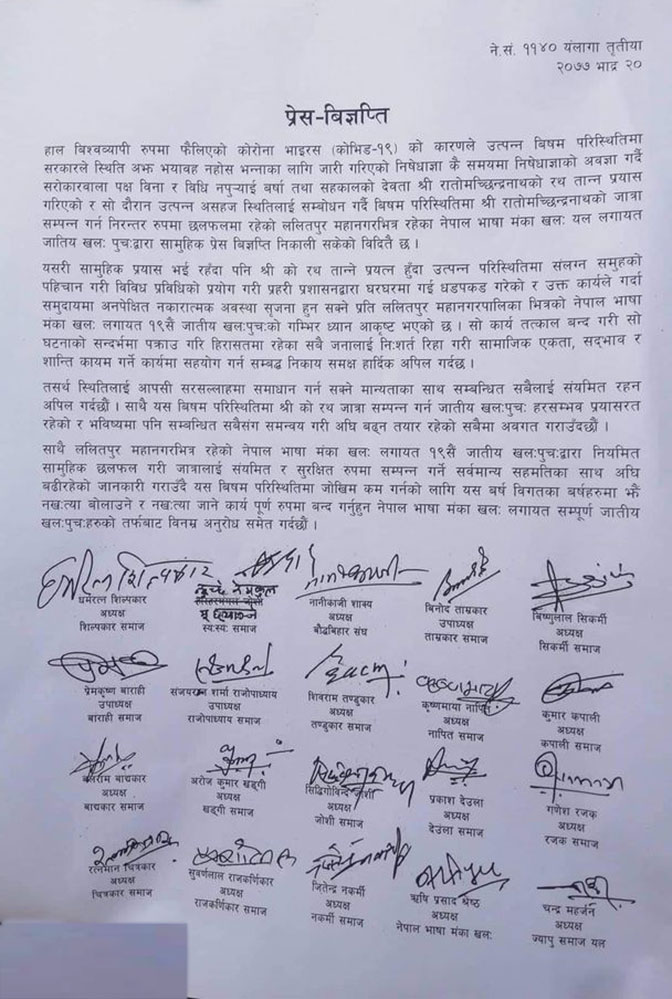 ने.सं. ११४० यंलागा तृतीया
२०७७ भाद्र २०
प्रेस-विज्ञप्ति
हाल विश्वव्यापी रुपमा फैलिएको कोरोना भाइरस (कोभिड-१९) को कारणले उत्पन्न बिषम परिस्थितिमा
सरकारले स्थिति अझ भयावह नहोस भन्नाका लागि जारी गरिएको निषेधाज्ञा कै समयमा निषेधाज्ञाको अवज्ञा गर्दै
सरोकारवाला पक्ष विना र विधि नपुर्‍याई बर्षा तथा सहकालको देवता श्री रातोमच्छिन्द्रनाथको रथ तान्न प्रयास
गरिएको र सो दौरान उत्पन्न असहज स्थितिलाई सम्बोधन गर्दै बिषम परिस्थितिमा श्री रातोमच्छिन्द्रनाथको जात्रा
सम्पन्न गर्न निरन्तर रुपमा छलफलमा रहेको ललितपुर महानगरभित्र रहेका नेपाल भाषा मंका खलः यल लगायत
जातिय खलः पुचःद्वारा सामुहिक प्रेस बिज्ञप्ति निकाली सकेको विदितै छ ।
यसरी सामुहिक प्रयास भई रहँदा पनि श्री को रथ तान्ने प्रयत्न हुँदा उत्पन्न परिस्थितिमा संलग्न समुहको
पहिचान गरी विविध प्रविधिको प्रयोग गरी प्रहरी प्रशासनद्वारा घरघरमा गई धडपकड गरेको र उक्त कार्यले गर्दा
समुदायमा अनपेक्षित नकारात्मक अवस्था सृजना हुन सक्ने प्रति ललितपुर महानगरपालिका भित्रको नेपाल भाषा
मंका खलः लगायत १९सै जातीय खलःपुचःको गम्भिर ध्यान आकृष्ट भएको छ । सो कार्य तत्काल बन्द गरी सो
घटनाको सन्दर्भमा पक्राउ गरि हिरासतमा रहेका सबै जनालाई निःशर्त रिहा गरी सामाजिक एकता, सद्‌भाव र
शान्ति कायम गर्ने कार्यमा सहयोग गर्न सम्बद्ध निकाय समक्ष हार्दिक अपिल गर्दछ ।
तसर्थ स्थितिलाई आपसी सरसल्लाहमा समाधान गर्न सक्ने मान्यताका साथ सम्बन्धित सबैलाई संयमित रहन
अपिल गर्दछौं । साथै यस बिषम परिस्थितिमा श्री को रथ जात्रा सम्पन्न गर्न जातीय खलःपुचः हरसम्भव प्रयासरत
रहेको र भविष्यमा पनि सम्बन्धित सबैसंग समन्वय गरी अघि बढ्न तयार रहेको सबैमा अवगत गराउँदछौं ।
साथै ललितपुर महानगरभित्र रहेको नेपाल भाषा मंका खलः लगायत १९सै जातीय खलःपुचःद्वारा नियमित
सामुहिक छलफल गरी जात्रालाई संयमित र सुरक्षित रुपमा सम्पन्न गर्ने सर्वमान्य सहमतिका साथ अघि
बढीरहेको जानकारी गराउँदै यस बिषम परिस्थितिमा जोखिम कम गर्नको लागि यस बर्ष विगतका बर्षहरुमा झैं
नखःत्या बोलाउने र नखःत्या जाने कार्य पूर्ण रुपमा बन्द गर्नुहुन नेपाल भाषा मंका खलः लगायत सम्पूर्ण जातीय
खलःपुचःहरुको तर्फबाट विनम्र अनुरोध समेत गर्दछौं ।
धर्मरत्न शिल्पकार नानीकाजी शाक्य बिनोद ताम्रकार बिष्णुलाल सिकर्मी
अध्यक्ष अध्यक्ष उपाध्यक्ष अध्यक्ष
शिल्पकार समाज स्वःस्वः समाज बौद्धबिहार संघ ताम्रकार समाज सिकर्मी समाज
प्रेमकृष्ण बाराही संजयरत्न शर्मा राजोपाध्याय शिवराम तण्डुकार कृष्णमाया नापित कुमार कपाली
उपाध्यक्ष उपाध्यक्ष अध्यक्ष अध्यक्ष अध्यक्ष
बाराही समाज राजोपाध्याय समाज तण्डुकार समाज नापित समाज कपाली समाज
बाद्यकार अरोज कुमार खड्गी सिद्धिगोविन्द जोशी प्रकाश देउला गणेश रजक
अध्यक्ष अध्यक्ष अध्यक्ष अध्यक्ष अध्यक्ष
बाद्यकार समाज खड्गी समाज जोशी समाज देउला समाज रजक समाज
रत्नमान चित्रकार सुवर्णलाल राजकर्णिकार जितेन्द्र नकर्मी ऋषि प्रसाद श्रेष्ठ चन्द्र महर्जन
अध्यक्ष अध्यक्ष अध्यक्ष अध्यक्ष अध्यक्ष
चित्रकार समाज राजकर्णिकार समाज नकर्मी समाज नेपाल भाषा मंका खलः ज्यापु समाज यल